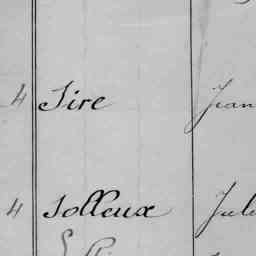 4 Sire Jean
4 Solleux Jule